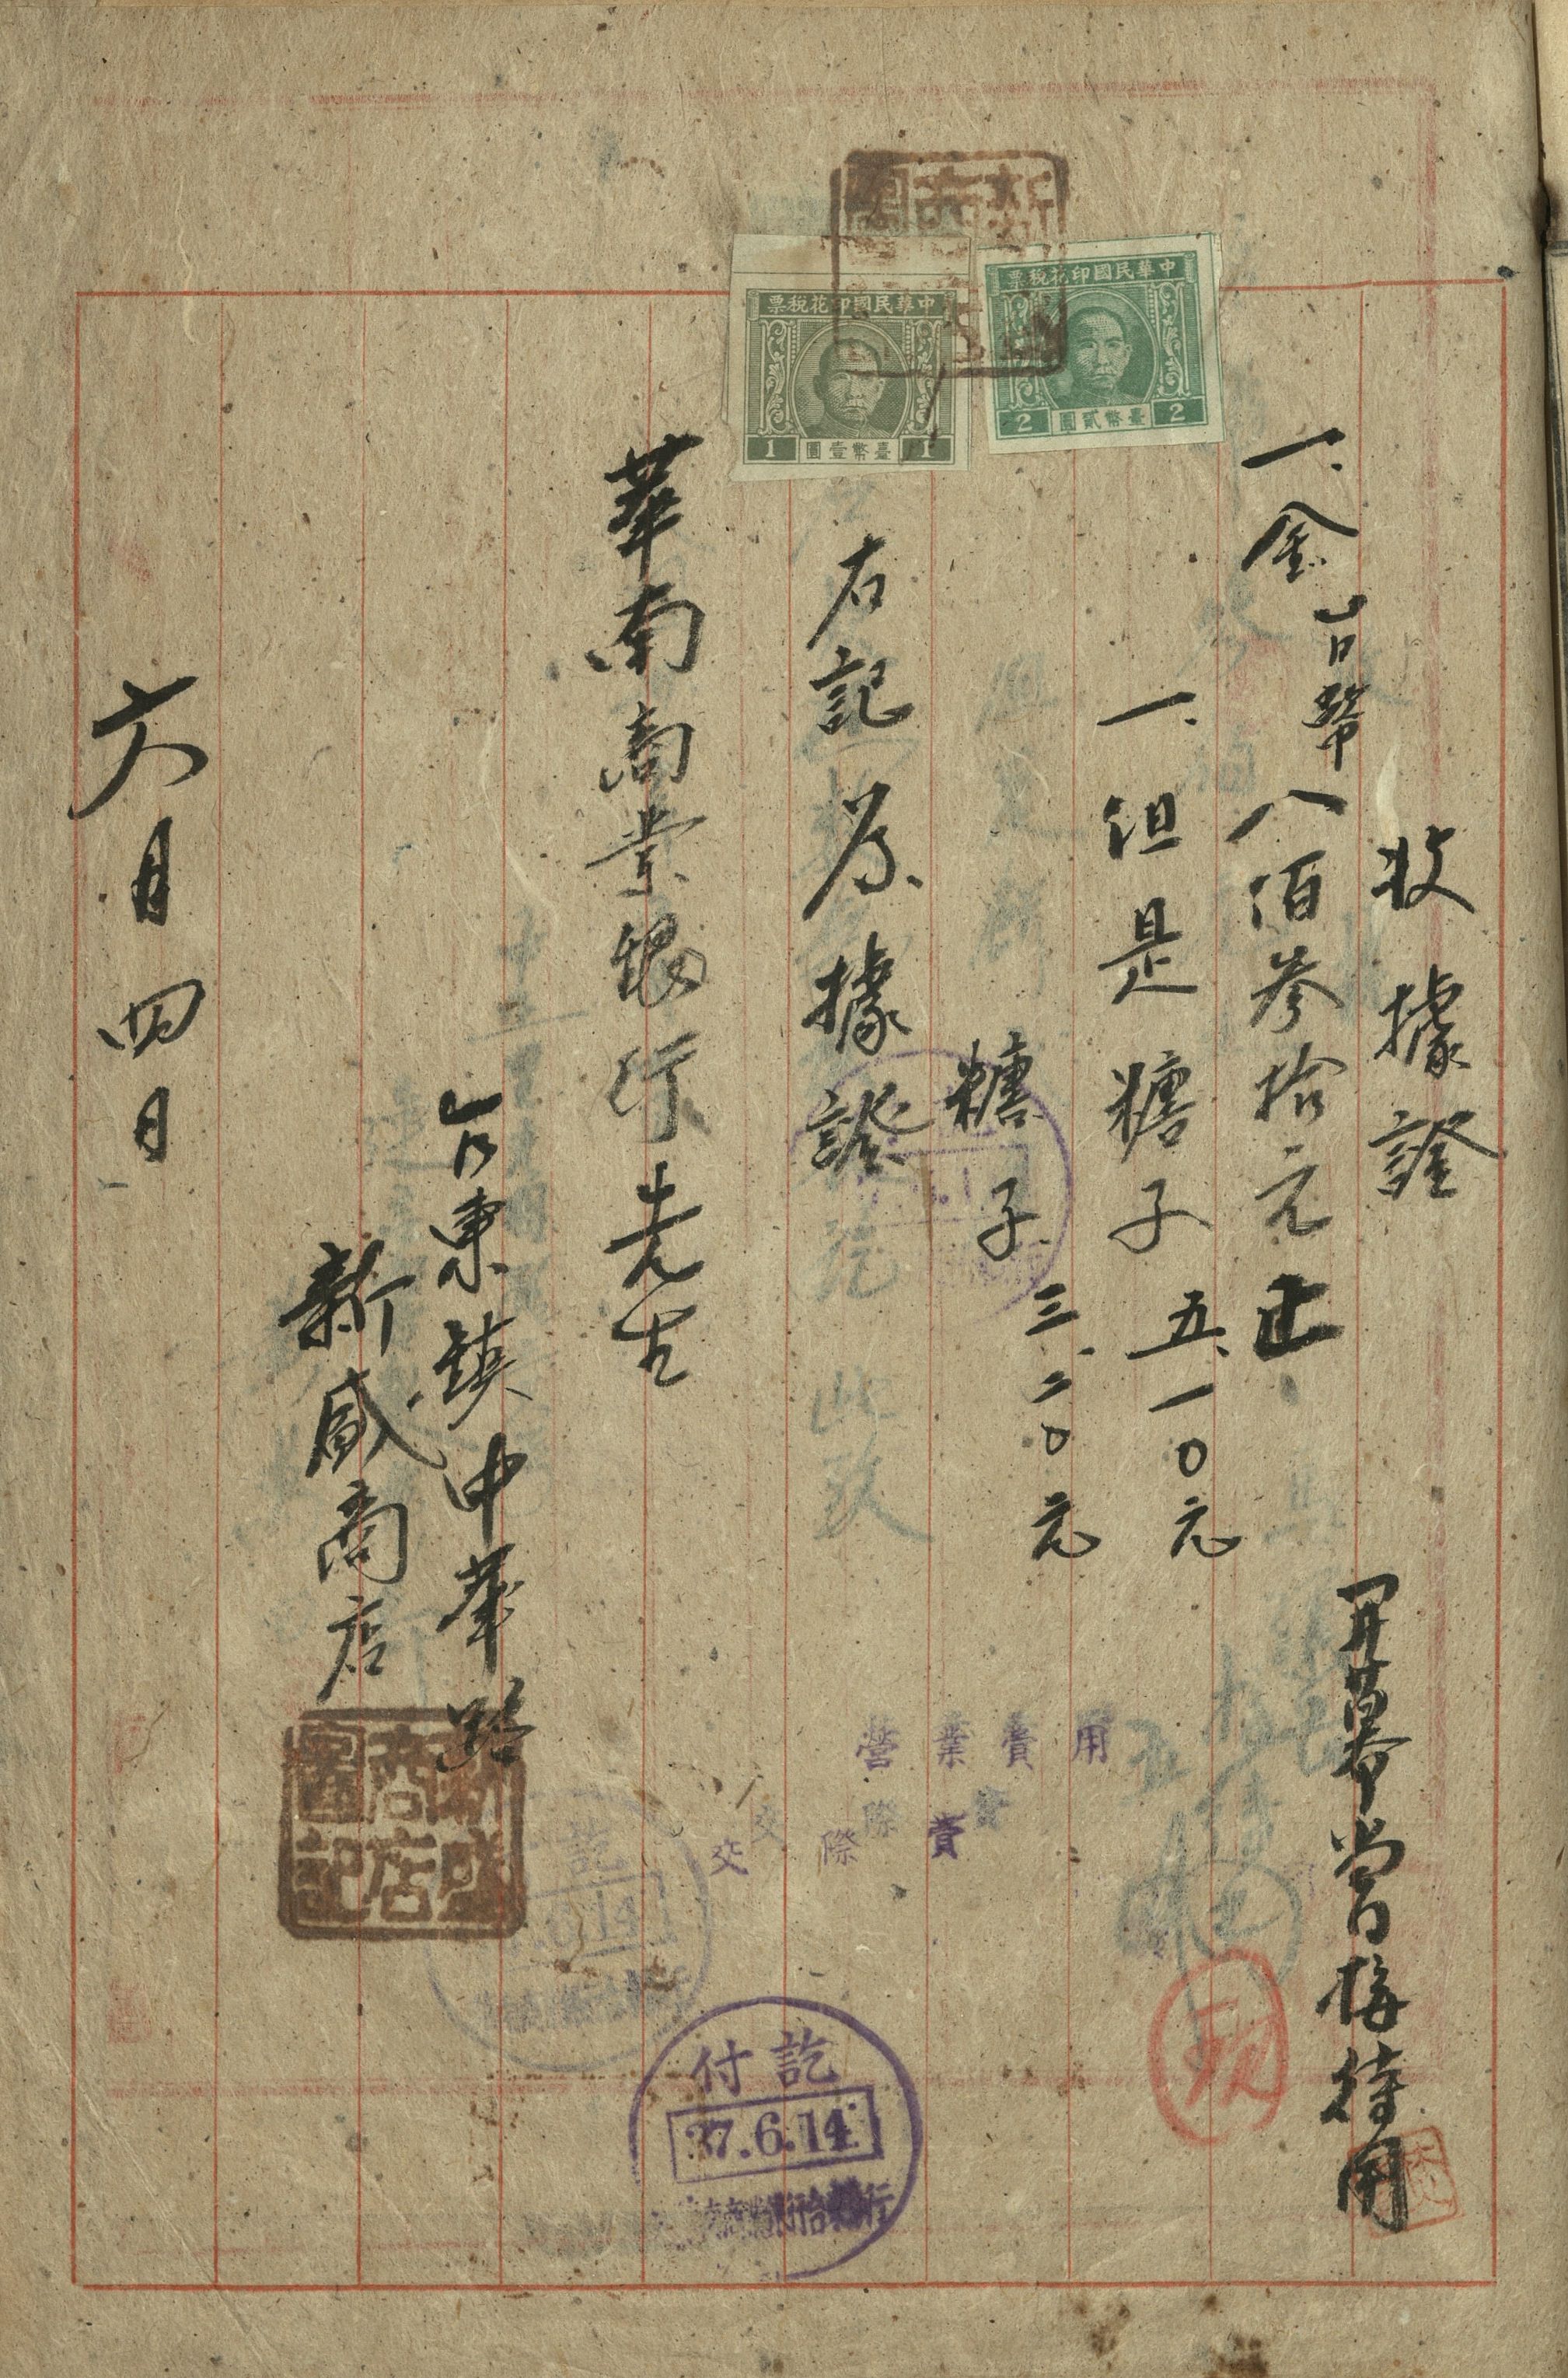 收據證
一、金台幣八佰参拾元正
一、但是糖子五、一〇元
糖子三、二〇元
右記爲據證
華南商業銀行先生
台東鎮中華路
新盛商店
六月四日
開幕當日接待用
中華民國印花稅票
2 臺幣貳圓 2
中華民國印花稅票
1 臺幣壹圓 1
營業費用
交際費
現
新盛商店圖記
付訖
37.6.14